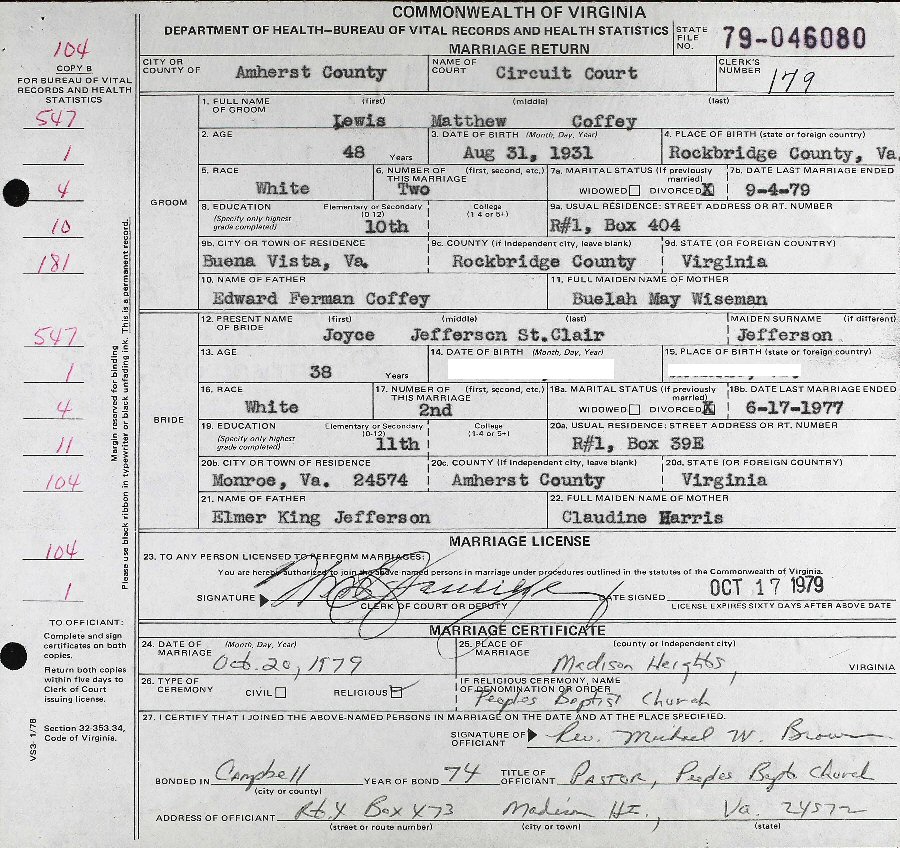 COMMONWEALTH OF VIRGINIA
DEPARTMENT OF HEALTH—BUREAU OF VITAL RECORDS AND HEALTH STATISTICS
MARRIAGE RETURN
STATE FILE NO. 79-046080
104
COPY B
FOR BUREAU OF VITAL RECORDS AND HEALTH STATISTICS
CITY OR COUNTY OF Amherst County NAME OF COURT Circuit Court CLERK'S NUMBER 179
547
1
4
10
181
547
1
4
11
104
104
1
Margin reserved for binding
Please use black ribbon in typewriter or black unfading ink. This is a permanent record.
GROOM
1. FULL NAME OF GROOM (first) (middle) (last)
Lewis Matthew Coffey
2. AGE 48 Years 3. DATE OF BIRTH (Month, Day, Year) Aug 31, 1931 4. PLACE OF BIRTH (state or foreign country) Rockbridge County, Va.
5. RACE White 6. NUMBER OF THIS MARRIAGE (first, second, etc.) Two 7a. MARITAL STATUS (If previously married) WIDOWED DIVORCED X 7b. DATE LAST MARRIAGE ENDED 9-4-79
8. EDUCATION (Specify only highest grade completed) Elementary or Secondary (0-12) 10th College (1-4 or 5+) 9a. USUAL RESIDENCE: STREET ADDRESS OR RT. NUMBER R#1, Box 404
9b. CITY OR TOWN OF RESIDENCE Buena Vista, Va. 9c. COUNTY (if independent city, leave blank) Rockbridge County 9d. STATE (OR FOREIGN COUNTRY) Virginia
10. NAME OF FATHER Edward Ferman Coffey 11. FULL MAIDEN NAME OF MOTHER Buelah May Wiseman
BRIDE
12. PRESENT NAME OF BRIDE (first) (middle) (last) MAIDEN SURNAME (if different)
Joyce Jefferson St.Clair Jefferson
13. AGE 38 Years 14. DATE OF BIRTH (Month, Day, Year) 15. PLACE OF BIRTH (state or foreign country)
16. RACE White 17. NUMBER OF THIS MARRIAGE (first, second, etc.) 2nd 18a. MARITAL STATUS (If previously married) WIDOWED DIVORCED X 18b. DATE LAST MARRIAGE ENDED 6-17-1977
19. EDUCATION (Specify only highest grade completed) Elementary or Secondary (0-12) 11th College (1-4 or 5+) 20a. USUAL RESIDENCE: STREET ADDRESS OR RT. NUMBER R#1, Box 39E
20b. CITY OR TOWN OF RESIDENCE Monroe, Va. 24574 20c. COUNTY (If independent city, leave blank) Amherst County 20d. STATE (OR FOREIGN COUNTRY) Virginia
21. NAME OF FATHER Elmer King Jefferson 22. FULL MAIDEN NAME OF MOTHER Claudine Harris
MARRIAGE LICENSE
23. TO ANY PERSON LICENSED TO PERFORM MARRIAGES:
You are hereby authorized to join the above named persons in marriage under procedures outlined in the statutes of the Commonwealth of Virginia.
SIGNATURE CLERK OF COURT OR DEPUTY DATE SIGNED OCT 17 1979
LICENSE EXPIRES SIXTY DAYS AFTER ABOVE DATE
MARRIAGE CERTIFICATE
TO OFFICIANT:
Complete and sign certificates on both copies.
Return both copies within five days to Clerk of Court issuing license.
Section 32-353.34, Code of Virginia.
VS3 1/78
24. DATE OF MARRIAGE (Month, Day, Year) Oct. 20, 1979 25. PLACE OF MARRIAGE (county or independent city) Madison Heights, VIRGINIA
26. TYPE OF CEREMONY CIVIL RELIGIOUS IF RELIGIOUS CEREMONY, NAME OF DENOMINATION OR ORDER Peoples Baptist Church
27. I CERTIFY THAT I JOINED THE ABOVE-NAMED PERSONS IN MARRIAGE ON THE DATE AND AT THE PLACE SPECIFIED.
SIGNATURE OF OFFICIANT Rev. Michael W. Brown
BONDED IN Campbell (city or county) YEAR OF BOND 74 TITLE OF OFFICIANT Pastor, Peoples Bapt. Church
ADDRESS OF OFFICIANT Rt. 4 Box 473 Madison Ht., Va. 24572
(street or route number) (city or town) (state)